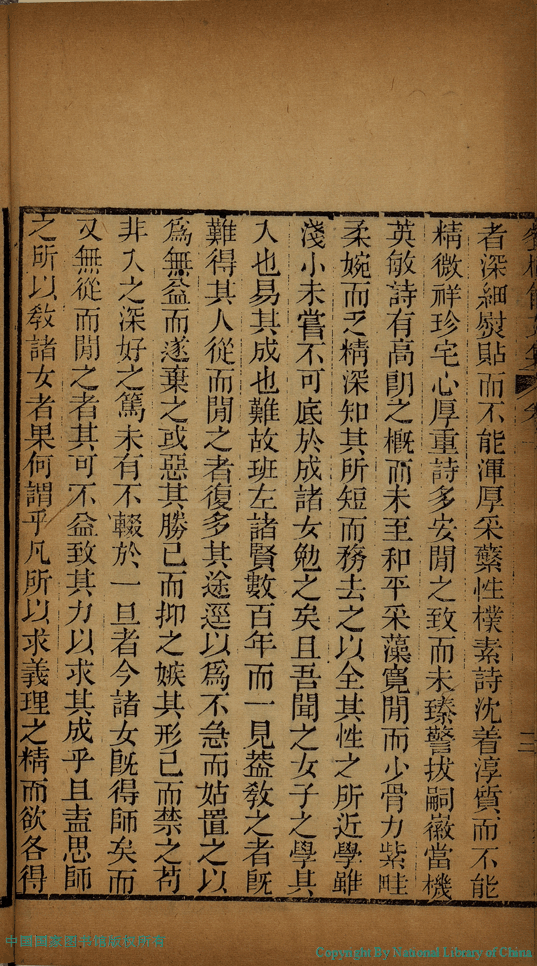 者深細熨貼而不能渾厚采蘩性樸素詩沈着淳質而不能
精微祥珍宅心厚重詩多安閒之致而未臻警拔嗣徽當機
英敏詩有高朗之概而未至和平采藻寬閒而少骨力紫畦
柔婉而乏精深知其所短而務去之以全其性之所近學雖
淺小未嘗不可底於成諸女勉之矣且吾聞之女子之學其
入也易其成也難故班左諸賢數百年而一見葢敎之者旣
難得其人從而閒之者復多其途逕以爲不急而姑置之以
爲無益而遂棄之或惡其勝己而抑之嫉其形己而禁之苟
非入之深好之篤未有不輟於一旦者今諸女旣得師矣而
又無從而閒之者其可不益致其力以求其成乎且盍思師
之所以敎諸女者果何謂乎凡所以求義理之精而欲各得
中國國家图书馆版权所有
Copyright By National Library of China